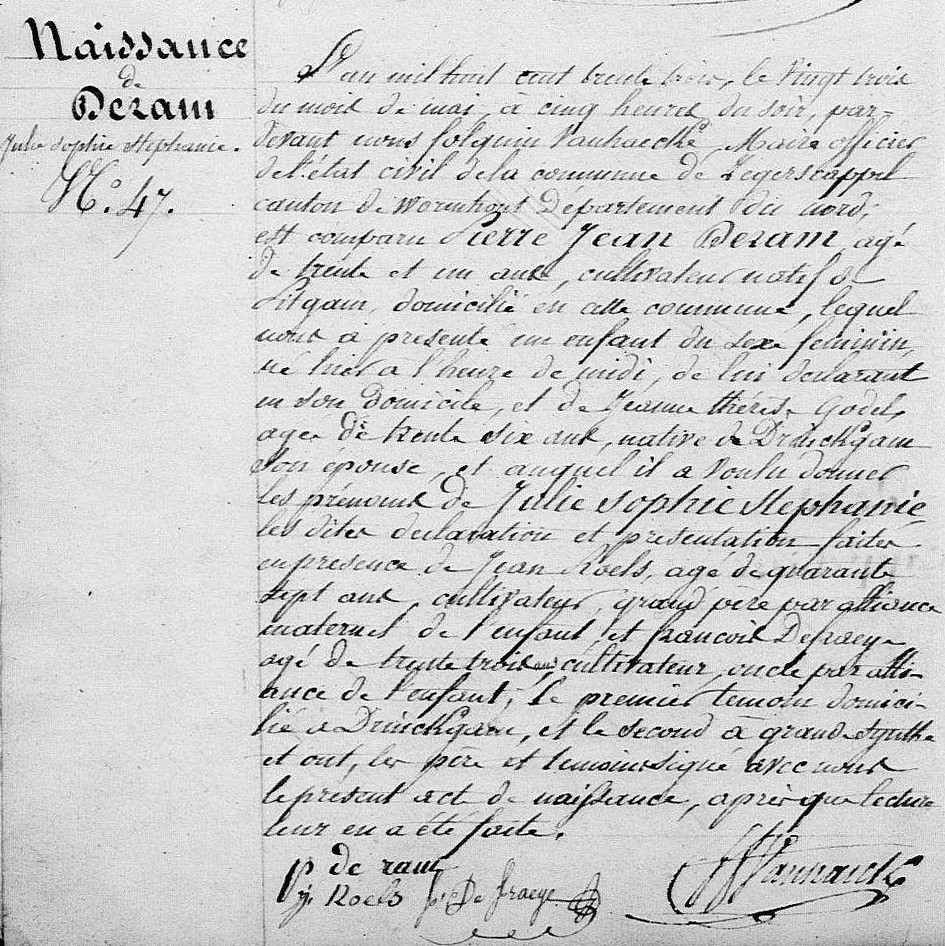 Naissance
de
Deram
Julie Sophie Stephanie.
N.° 47.
L'an mil huit cent trente trois, le vingt trois
du mois de mai, à cinq heures du soir, par-
devant nous folquin Vanhaecke, Maire officier
de l'état civil de la commune de Zegerscappel
canton de Wormhout Département du nord,
est comparu Pierre Jean Deram, agé
de trente et un ans, cultivateur natif de
Pitgam, domicilié en cette commune, lequel
nous a présenté un enfant du sexe féminin,
né hier à l'heure de midi, de lui déclarant
en son domicile, et de Jeanne thérèse Godel,
agée de trente six ans, native de Drinckham
son épouse, et auquel il a voulu donner
les prénoms de Julie Sophie Stephanie
les dites declaration et présentation faites
en présence de Jean Roels, agé de quarante
sept ans, cultivateur, grand père par alliance
maternel de l'enfant et francois Defraeye
agé de trente trois ans, cultivateur, oncle par alli-
ance de l'enfant, le premier temoin domici-
lié à Drinckham, et le second à grande Synthe
et ont, les père et temoins signé avec nous
le présent acte de naissance, après que lecture
leur en a été faite.
p de ram
j. Roels f. De fraeye